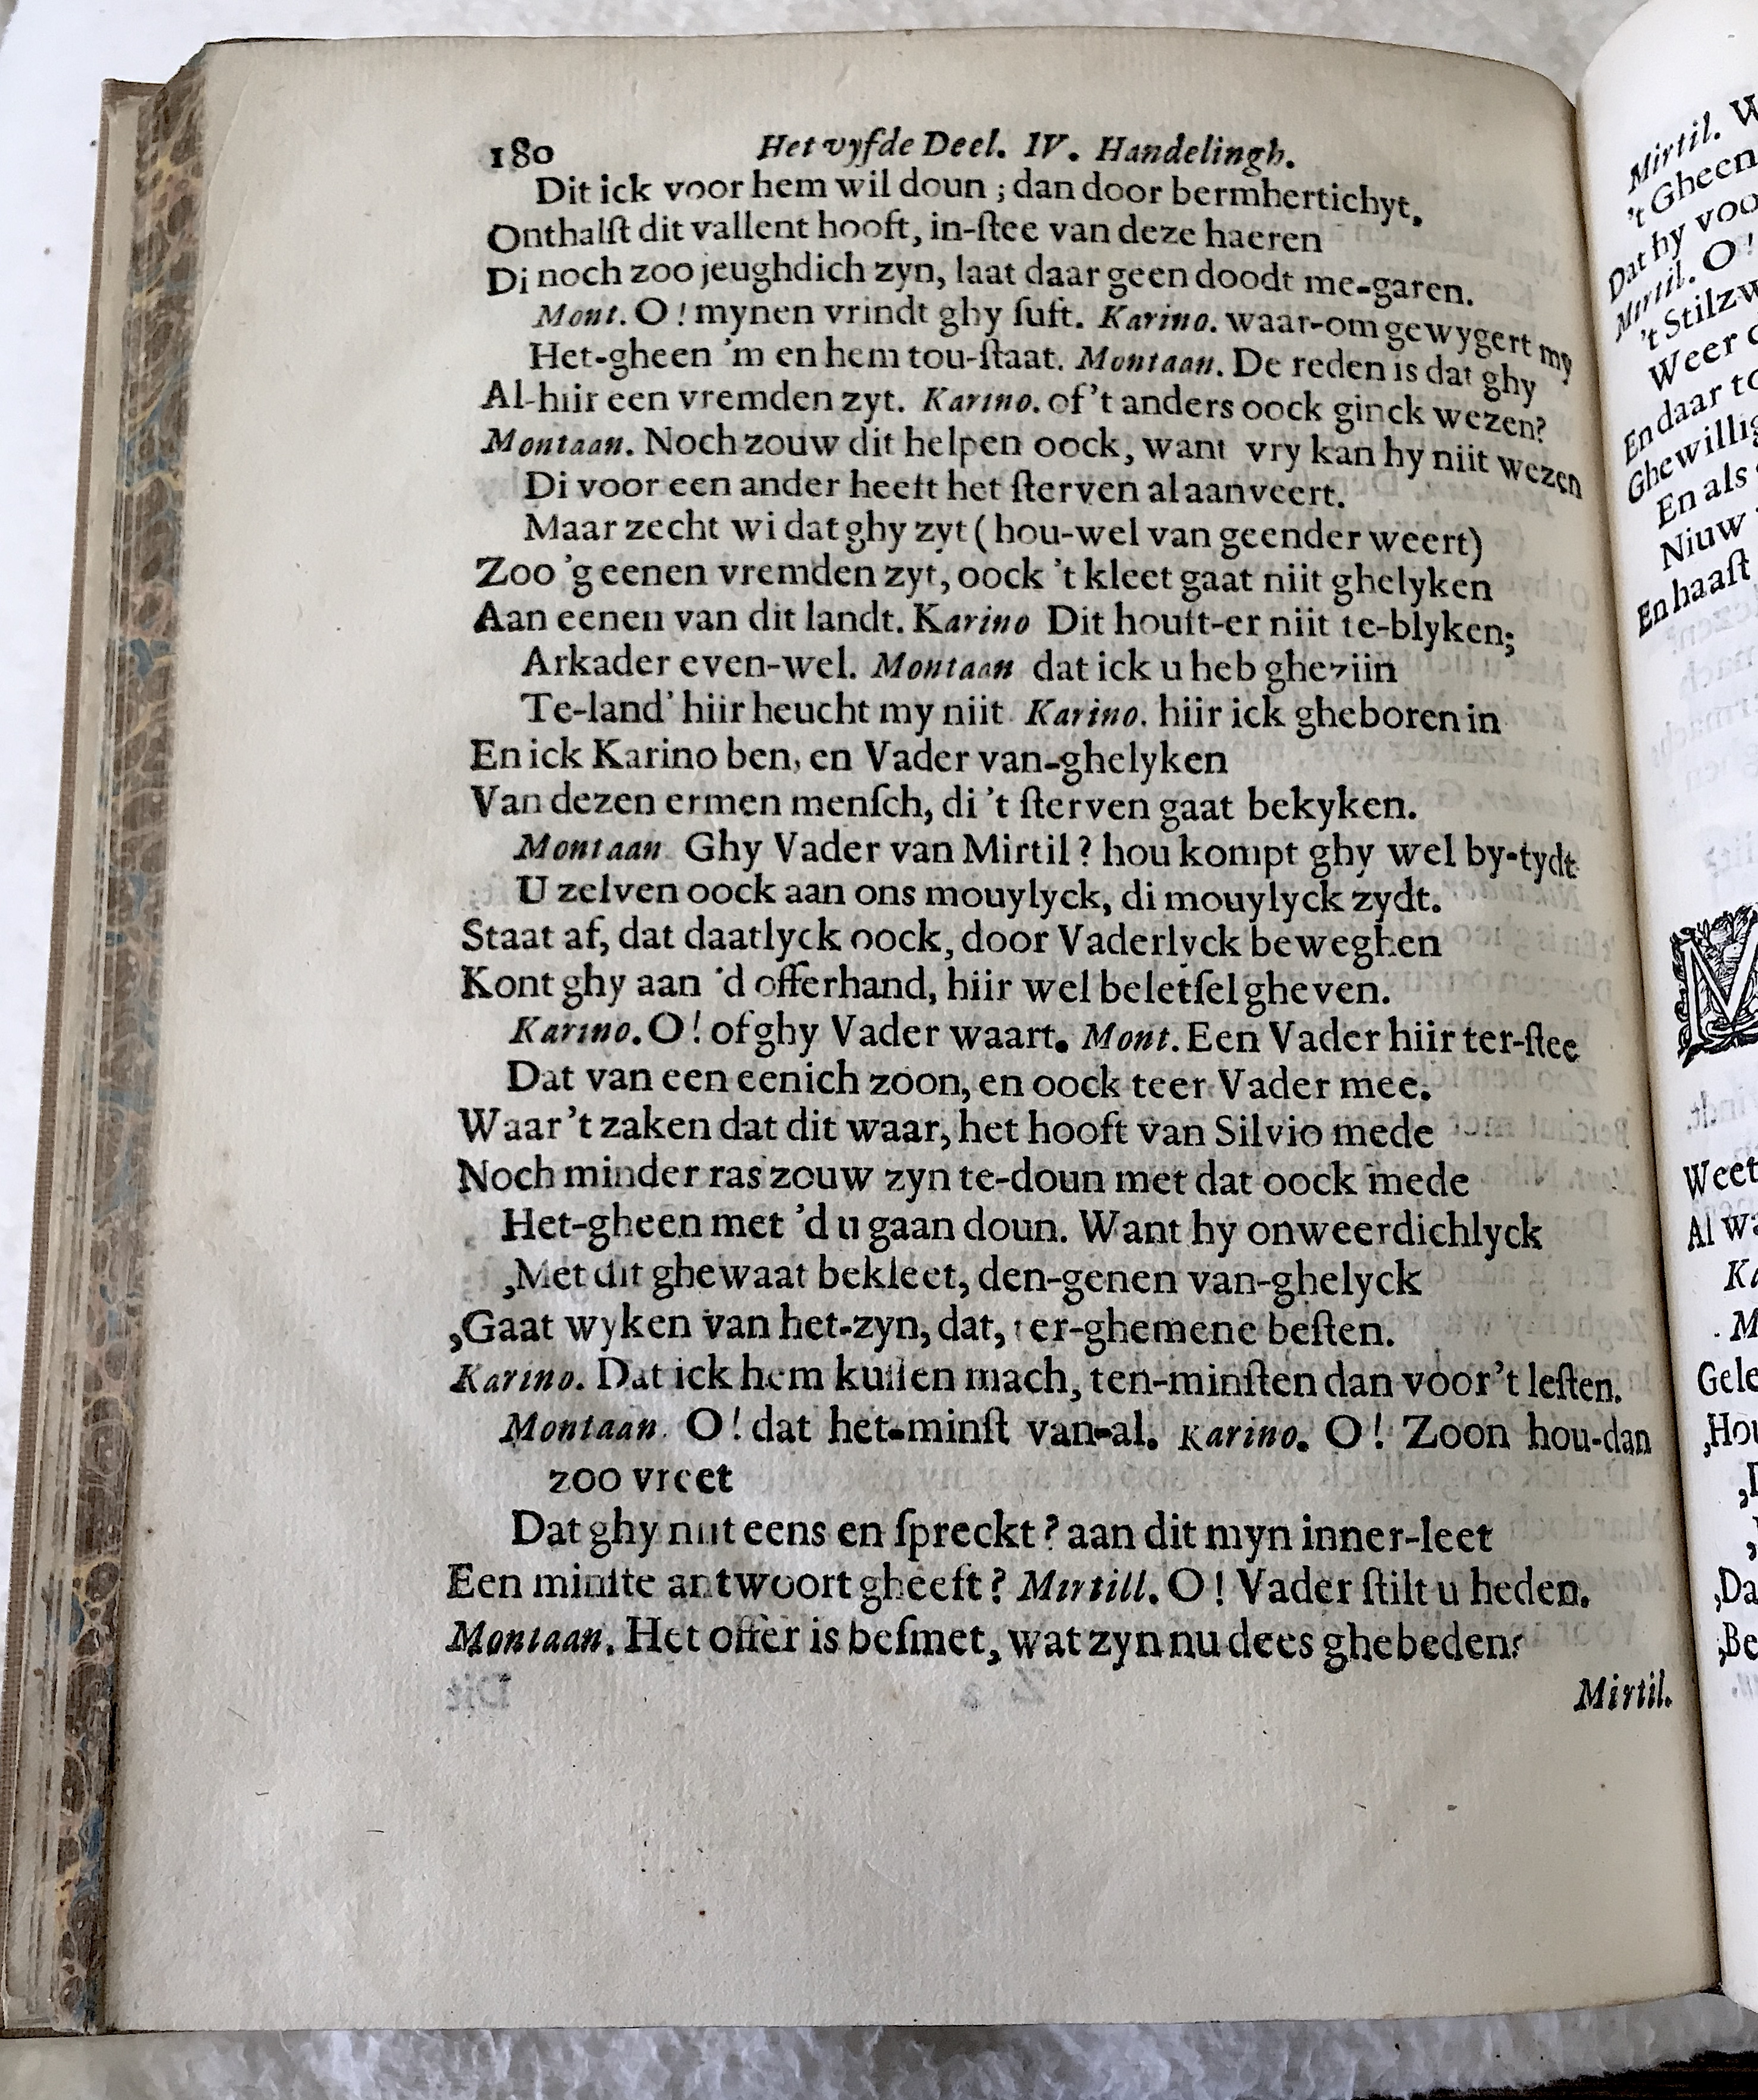 180 Het vyfde Deel. IV. Handelingh.
Dit ick voor hem wil doun ; dan door bermhertichyt,
Onthalſt dit vallent hooft, in-ſtee van deze haeren
Di noch zoo jeughdich zyn, laat daar geen doodt me-garen.
Mont. O ! mynen vrindt ghy ſuft. Karino. waar-om gewygert my
Het-gheen 'm en hem tou-ſtaat. Montaan. De reden is dat ghy
Al-hiir een vremden zyt. Karino. of 't anders oock ginck wezen?
Montaan. Noch zouw dit helpen oock, want vry kan hy niit wezen
Di voor een ander heeft het ſterven al aanveert.
Maar zecht wi dat ghy zyt ( hou-wel van geender weert)
Zoo 'g eenen vremden zyt, oock 't kleet gaat niit ghelyken
Aan eenen van dit landt. Karino Dit houft-er niit te-blyken;
Arkader even-wel. Montaan dat ick u heb gheziin
Te-land' hiir heucht my niit. Karino. hiir ick gheboren in
En ick Karino ben, en Vader van-ghelyken
Van dezen ermen menſch, di 't ſterven gaat bekyken.
Montaan Ghy Vader van Mirtil ? hou kompt ghy wel by-tydt
U zelven oock aan ons mouylyck, di mouylyck zydt.
Staat af, dat daatlyck oock, door Vaderlyck beweghen
Kont ghy aan 'd offerhand, hiir wel beletſel gheven.
Karino. O ! of ghy Vader waart. Mont. Een Vader hiir ter-ſtee
Dat van een eenich zoon, en oock teer Vader mee.
Waar 't zaken dat dit waar, het hooft van Silvio mede
Noch minder ras zouw zyn te-doun met dat oock mede
Het-gheen met 'd u gaan doun. Want hy onweerdichlyck
,Met dit ghewaat bekleet, den-genen van-ghelyck
,Gaat wyken van het-zyn, dat, ter-ghemene beſten.
Karino. Dat ick hem kuſſen mach, ten-minſten dan voor 't leſten.
Montaan. O ! dat het-minſt van-al. Karino. O ! Zoon hou-dan
zoo vreet
Dat ghy niit eens en ſpreckt ? aan dit myn inner-leet
Een minſte antwoort gheeft ? Mirtill. O ! Vader ſtilt u heden.
Montaan. Het offer is beſmet, wat zyn nu dees ghebeden?
Mirtil.
Mirtil. W
't Gheen
Dat hy voo
Mirtil. O !
't Stilzw
Weer
En daar to
Ghewillig
En als
Niuw
En haaſt
M
Weet
Al wa
Ka
M
Gele
,Hou
,Da
,Be